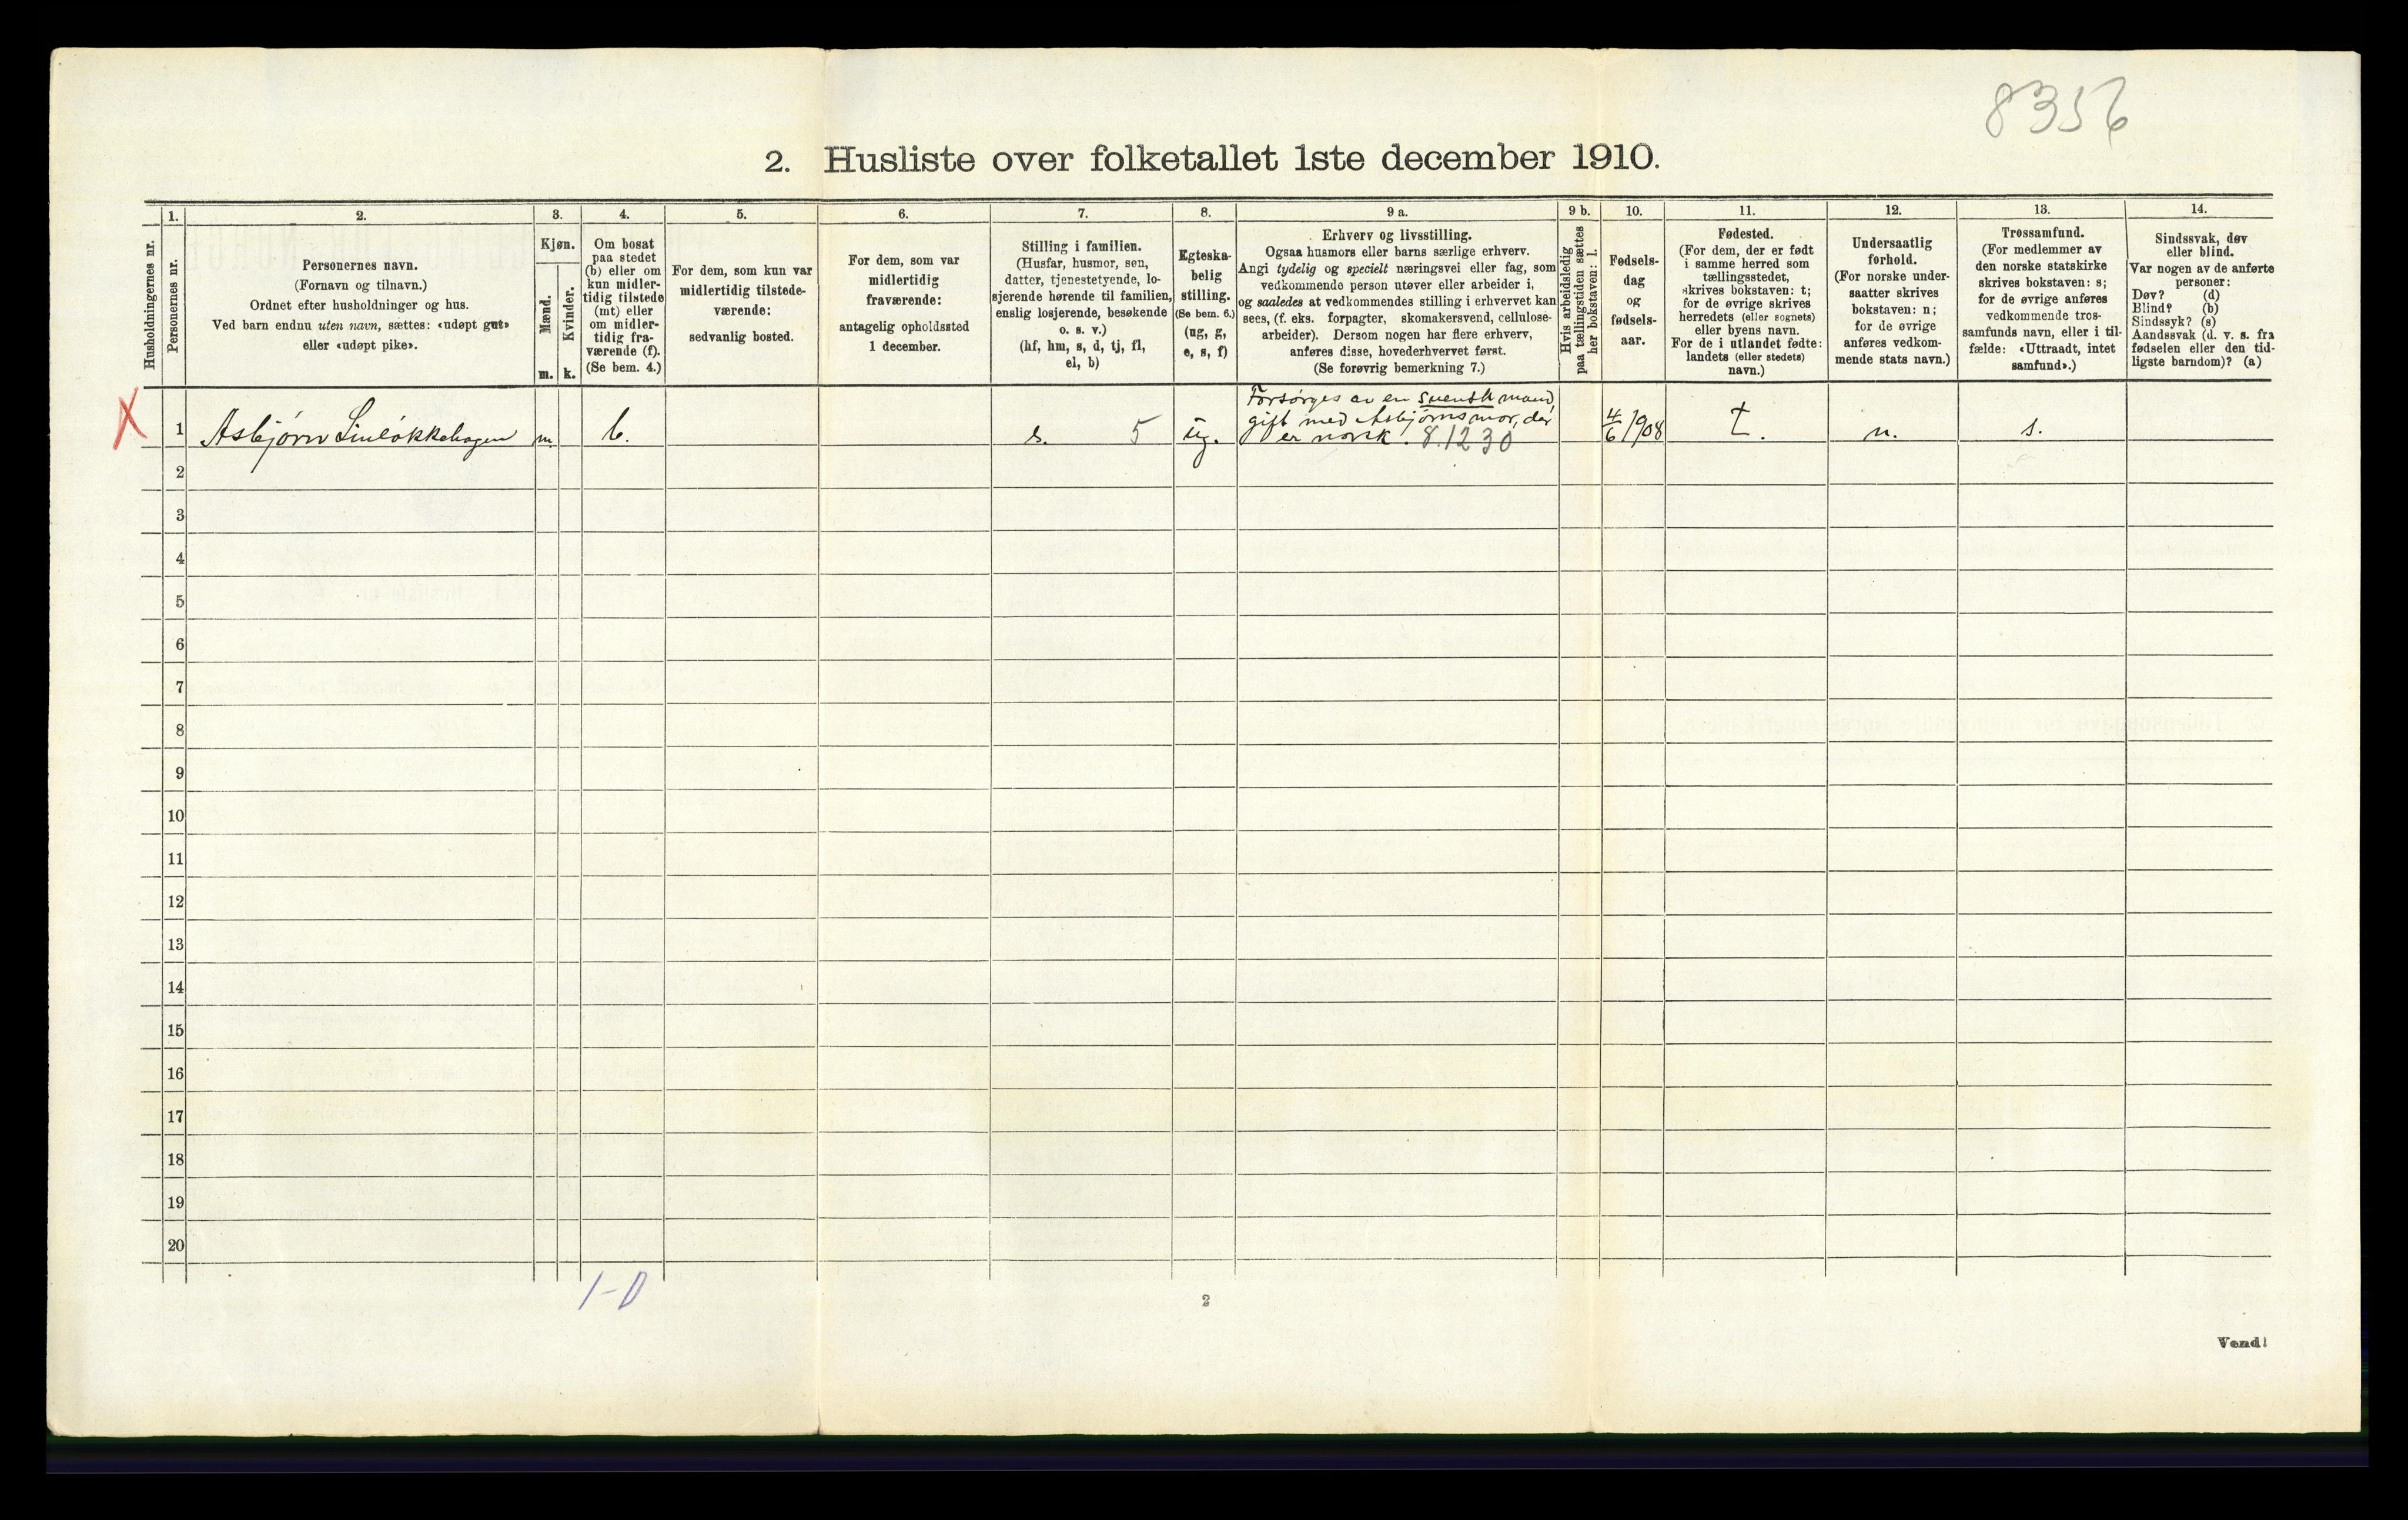 8356
2. Husliste over folketallet 1ste december 1910.
Husholdningernes nr.
1.
Personernes nr.
2.
Personernes navn.
(Fornavn og tilnavn.)
Ordnet efter husholdninger og hus.
Ved barn endnu uten navn, sættes: «udøpt gut»
eller «udøpt pike».
3.
Kjøn.
Mænd.
Kvinder.
m. k.
4.
Om bosat
paa stedet
(b) eller om
kun midler-
tidig tilstede
(mt) eller
om midler-
tidig fra-
værende (f).
(Se bem. 4.)
5.
For dem, som kun var
midlertidig tilstede-
værende:
sedvanlig bosted.
6.
For dem, som var
midlertidig
fraværende:
antagelig opholdssted
1 december.
7.
Stilling i familien.
(Husfar, husmor, søn,
datter, tjenestetyende, lo-
sjerende hørende til familien,
enslig losjerende, besøkende
o. s. v.)
(hf, hm, s, d, tj, fl,
el, b)
8.
Egteska-
belig
stilling.
(Se bem. 6.)
(ug, g,
e, s, f)
9 a.
Erhverv og livsstilling.
Ogsaa husmors eller barns særlige erhverv.
Angi tydelig og specielt næringsvei eller fag, som
vedkommende person utøver eller arbeider i,
og saaledes at vedkommendes stilling i erhvervet kan
sees, (f. eks. forpagter, skomakersvend, cellulose-
arbeider). Dersom nogen har flere erhverv,
anføres disse, hovederhvervet først.
(Se forøvrig bemerkning 7.)
9 b.
Hvis arbeidsledig
paa tællingstiden sættes
her bokstaven: l.
10.
Fødsels-
dag
og
fødsels-
aar.
11.
Fødested.
(For dem, der er født
i samme herred som
tællingsstedet,
skrives bokstaven: t;
for de øvrige skrives
herredets (eller sognets)
eller byens navn.
For de i utlandet fødte:
landets (eller stedets)
navn.)
12.
Undersaatlig
forhold.
(For norske under-
saatter skrives
bokstaven: n;
for de øvrige
anføres vedkom-
mende stats navn.)
13.
Trossamfund.
(For medlemmer av
den norske statskirke
skrives bokstaven: s;
for de øvrige anføres
vedkommende tros-
samfunds navn, eller i til-
fælde: «Uttraadt, intet
samfund».)
14.
Sindssvak, døv
eller blind.
Var nogen av de anførte
personer:
Døv? (d)
Blind? (b)
Sindssyk? (s)
Aandssvak (d. v. s. fra
fødselen eller den tid-
ligste barndom)? (a)
X
1 Asbjørn m. b. s. 5 ug.
Forsørges av en svensk mand,
gift med Asbjørns mor, der
er norsk. 8.1230
4/6 1908 t. n. s.
2
3
4
5
6
7
8
9
10
11
12
13
14
15
16
17
18
19
20
1-0
2
Vend!